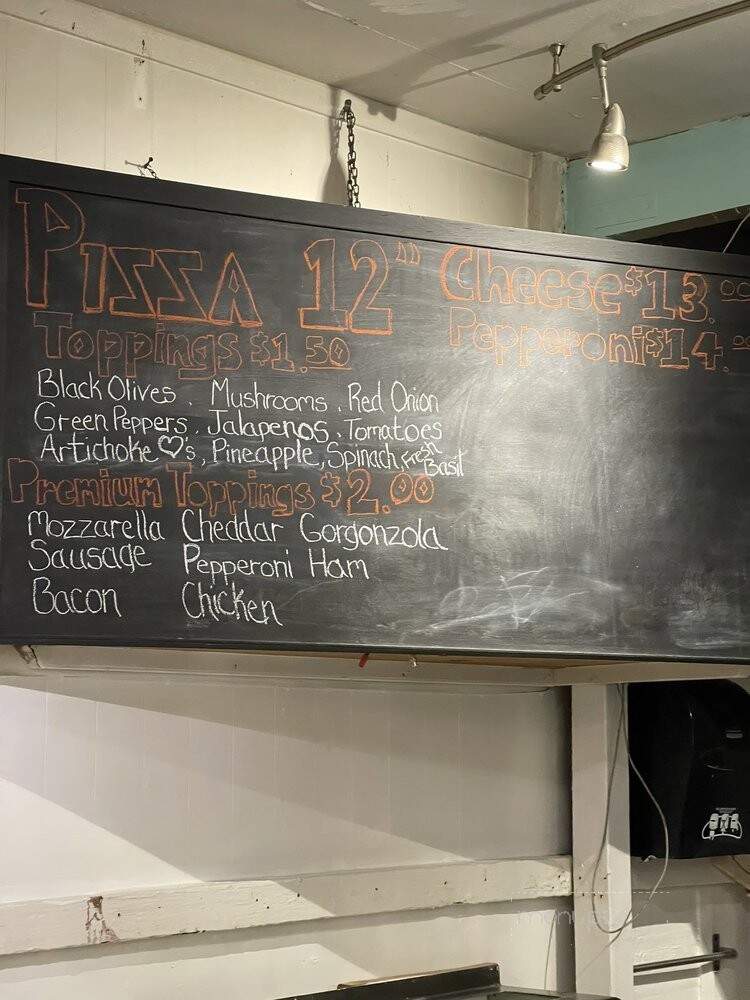 PIZZA 12" Cheese $13.00
Toppings $1.50 Pepperoni $14.00
Black Olives, Mushrooms, Red Onion
Green Peppers, Jalapenos, Tomatoes
Artichoke ♡'s, Pineapple, Spinach, Fresh Basil
Premium Toppings $2.00
Mozzarella Cheddar Gorgonzola
Sausage Pepperoni Ham
Bacon Chicken